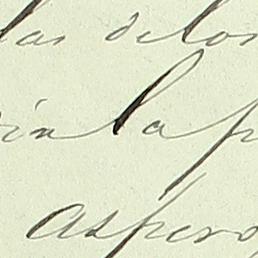 las delos
in la p
aspero